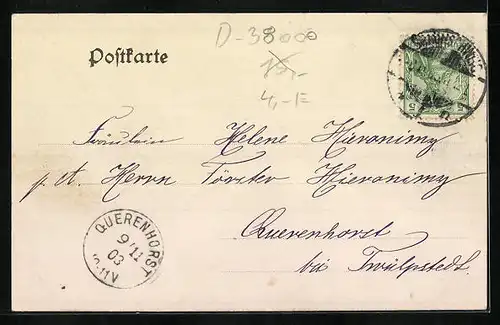 D-38000
Postkarte
15,-
4,-E
5 5
Fräulein Helene Hieronimy
p. ad. Herrn Förster Hieronimy
Querenhorst
bei Twülpstedt.
QUERENHORST
9/11
03
8-11V